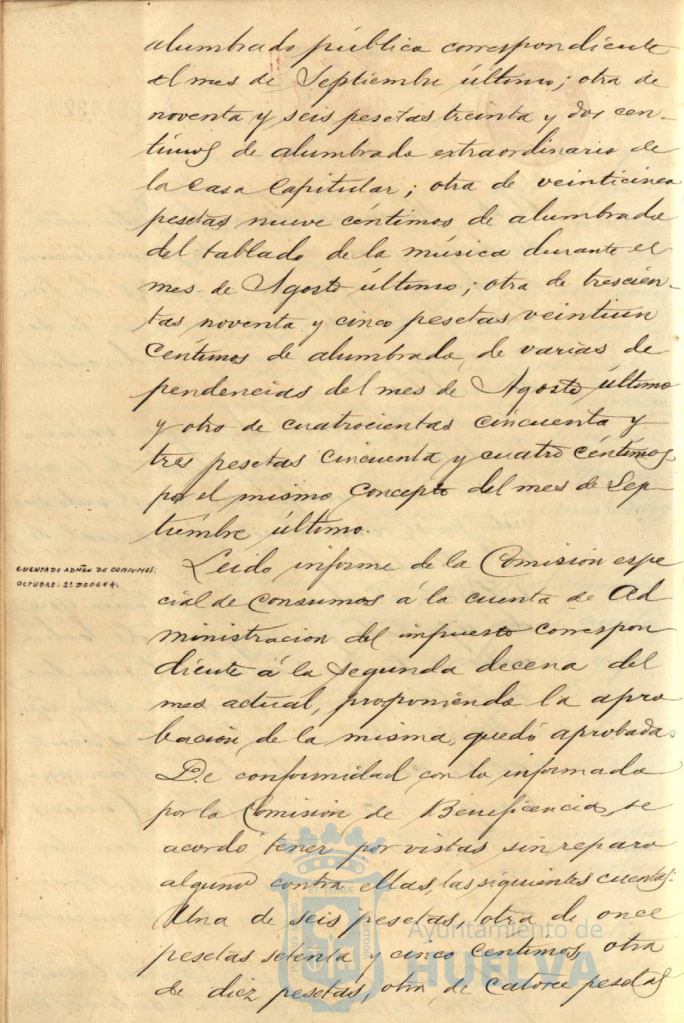 alumbrado público correspondiente
al mes de Septiembre último; otra de
noventa y seis pesetas treinta y dos cen-
timos de alumbrado extraordinario de
la Casa Capitular; otra de veinticinco
pesetas nueve céntimos de alumbrado
del tablado de la música durante el
mes de Agosto último; otra de trescien-
tas noventa y cinco pesetas veintiun
céntimos de alumbrado de varias de
pendencias del mes de Agosto último
y otro de cuatrocientas cincuenta y
tres pesetas cincuenta y cuatro céntimos
por el mismo concepto del mes de Sep
tiembre último.
CUENTA DE ADMÓN DE CONSUMOS.
OCTUBRE. 2ª DECENA.
Leido informe de la Comisión espe
cial de Consumos á la cuenta de Ad
ministracion del impuesto correspon
diente á la segunda decena del
mes actual, proponiendo la apro
bación de la misma, quedó aprobada.
De conformidad con lo informado
por la Comisión de Beneficencia, se
acordó tener por vistas sin reparo
alguno contra ellas, las siguientes cuentas:
Una de seis pesetas, otra de once
pesetas setenta y cinco centimos, otra
de diez pesetas, otra de catorce pesetas
Ayuntamiento de
HUELVA